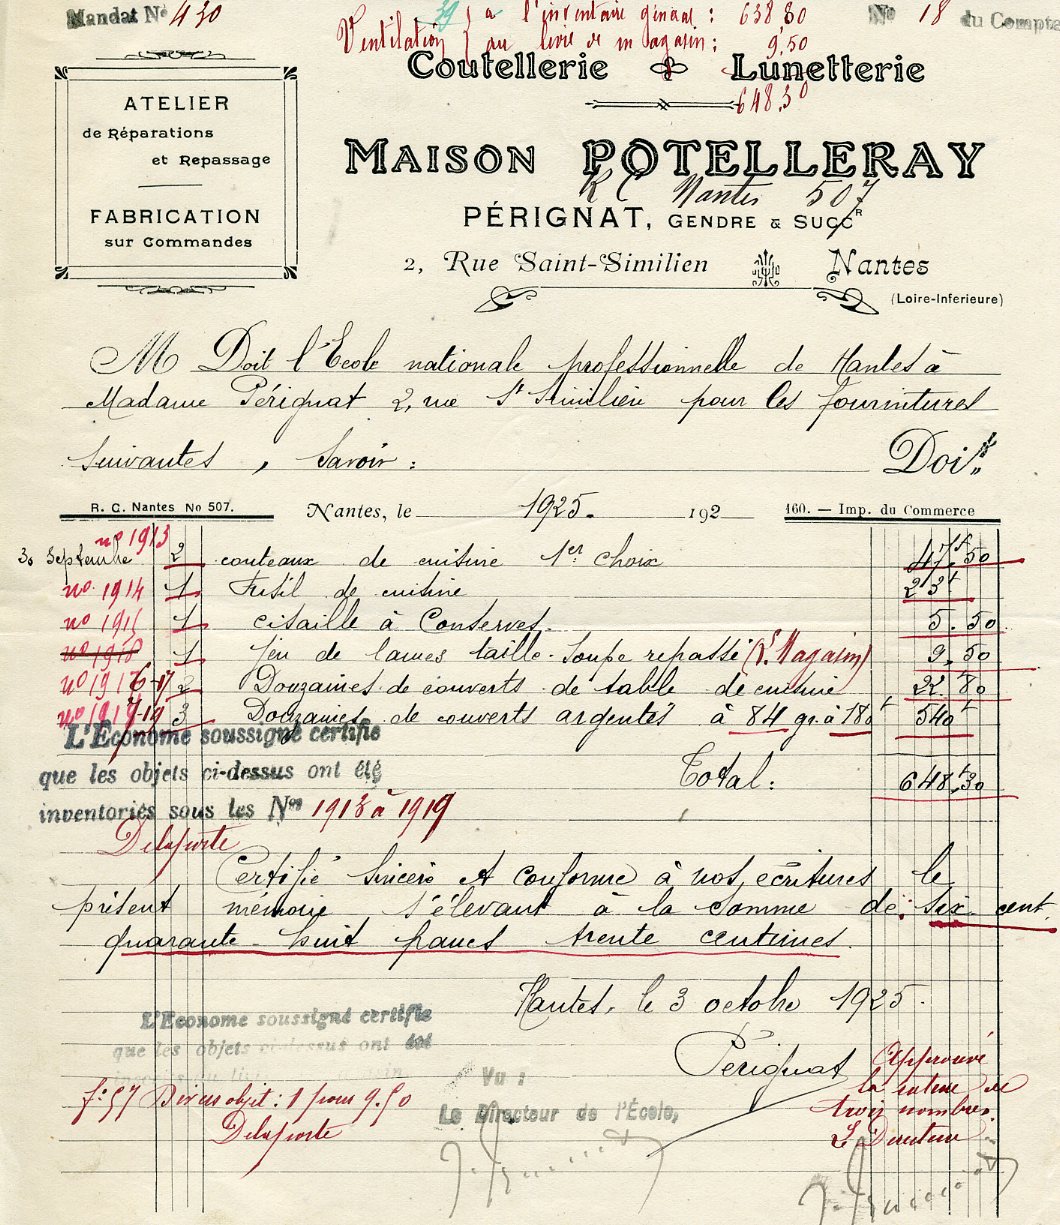 Mandat Nº 430
Ventilation { à l'inventaire général : 638.80
au livre de magasin : 9.50
648.30
Nº 18 du Compte
Coutellerie Lunetterie
ATELIER
de Réparations
et Repassage
FABRICATION
sur Commandes
MAISON POTELLERAY
R C Nantes 507
PÉRIGNAT, GENDRE & SUCCR
2, Rue Saint-Similien Nantes
(Loire-Inferieure)
M Doit l'Ecole nationale professionnelle de Nantes à
Madame Pérignat 2, rue St Similien pour les fournitures
suivantes, savoir :
Doit
R. C. Nantes No 507.
Nantes, le 1925. 192
160. — Imp. du Commerce
no 1913
30 Septembre 2 couteaux de cuisine 1er choix 47f.50
no 1914 1 Fusil de cuisine 23f
no 1915 1 cisaille à Conserves. 5.50
no 1916 1 jeu de lames taille-soupe repassé (L. Magasin) 9.50
no 1916-17 2 Douzaines de couverts de table de cuisine 22.80
no 1917-19 3 Douzaines de couverts argentés à 84 gr. à 180f 540f
L'Econome soussigné certifie
que les objets ci-dessus ont été
inventoriés sous les Nos 1913 à 1919
Delaporte
Total : 648f.30
Certifié sincère et conforme à nos écritures le
présent mémoire s'élevant à la somme de : six cent
quarante-huit francs trente centimes
Nantes, le 3 octobre 1925.
Pérignat
L'Econome soussigné certifie
que les objets ci-dessus ont été
fº 57 Divers objet : 1 pour 9.50
Delaporte
Vu :
Le Directeur de l'École,
Approuvé
la rature de
trois nombres.
Le Directeur